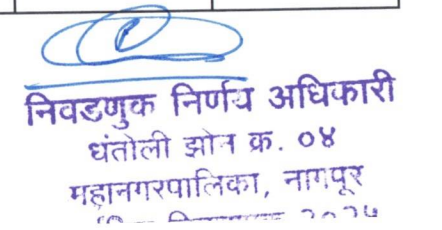 निवडणुक निर्णय अधिकारी
धंतोली झोन क्र. ०४
महानगरपालिका, नागपूर